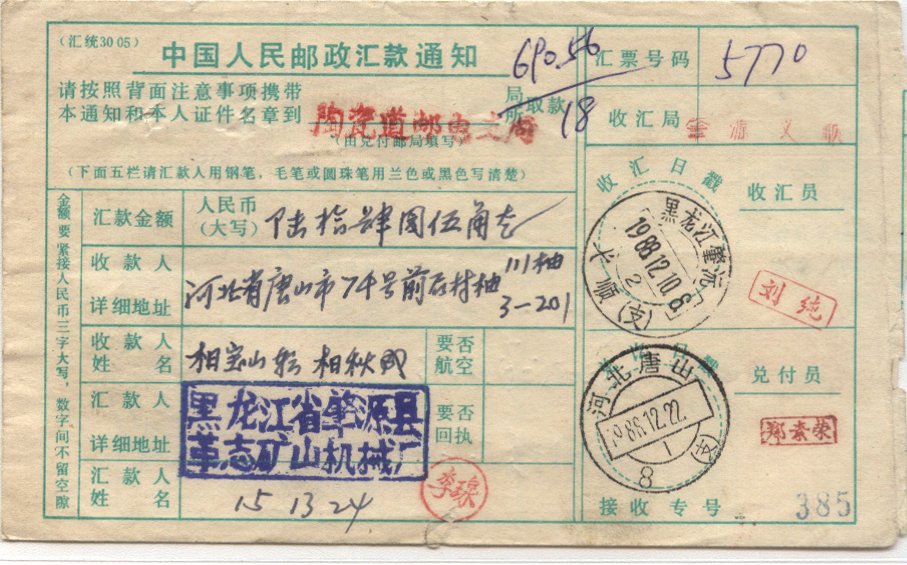 (汇统3005)
中国人民邮政汇款通知
690.56
汇票号码 5770
请按照背面注意事项携带
本通知和本人证件名章到 陶瓷道邮电支局 局所取款
18
(由兑付邮局填写)
收汇局
(下面五栏请汇款人用钢笔,毛笔或圆珠笔用兰色或黑色写清楚)
金额要紧接人民币三字大写,数字间不留空隙
汇款金额 人民币(大写) 陆拾肆圆伍角
收款人详细地址 河北省唐山市74号前石村
3-201
收款人姓名 相宝山 相秋
要否航空
汇款人详细地址 黑龙江省肇源县
革志矿山机械厂
要否回执
汇款人姓名 15 13 24
李
收汇日戳
黑龙江肇源
1988.12.10.8
2
(支)
收汇员
刘纯
日戳
河北唐山
1988.12.22.
1
(支)
8
兑付员
郑素荣
接收专号 385